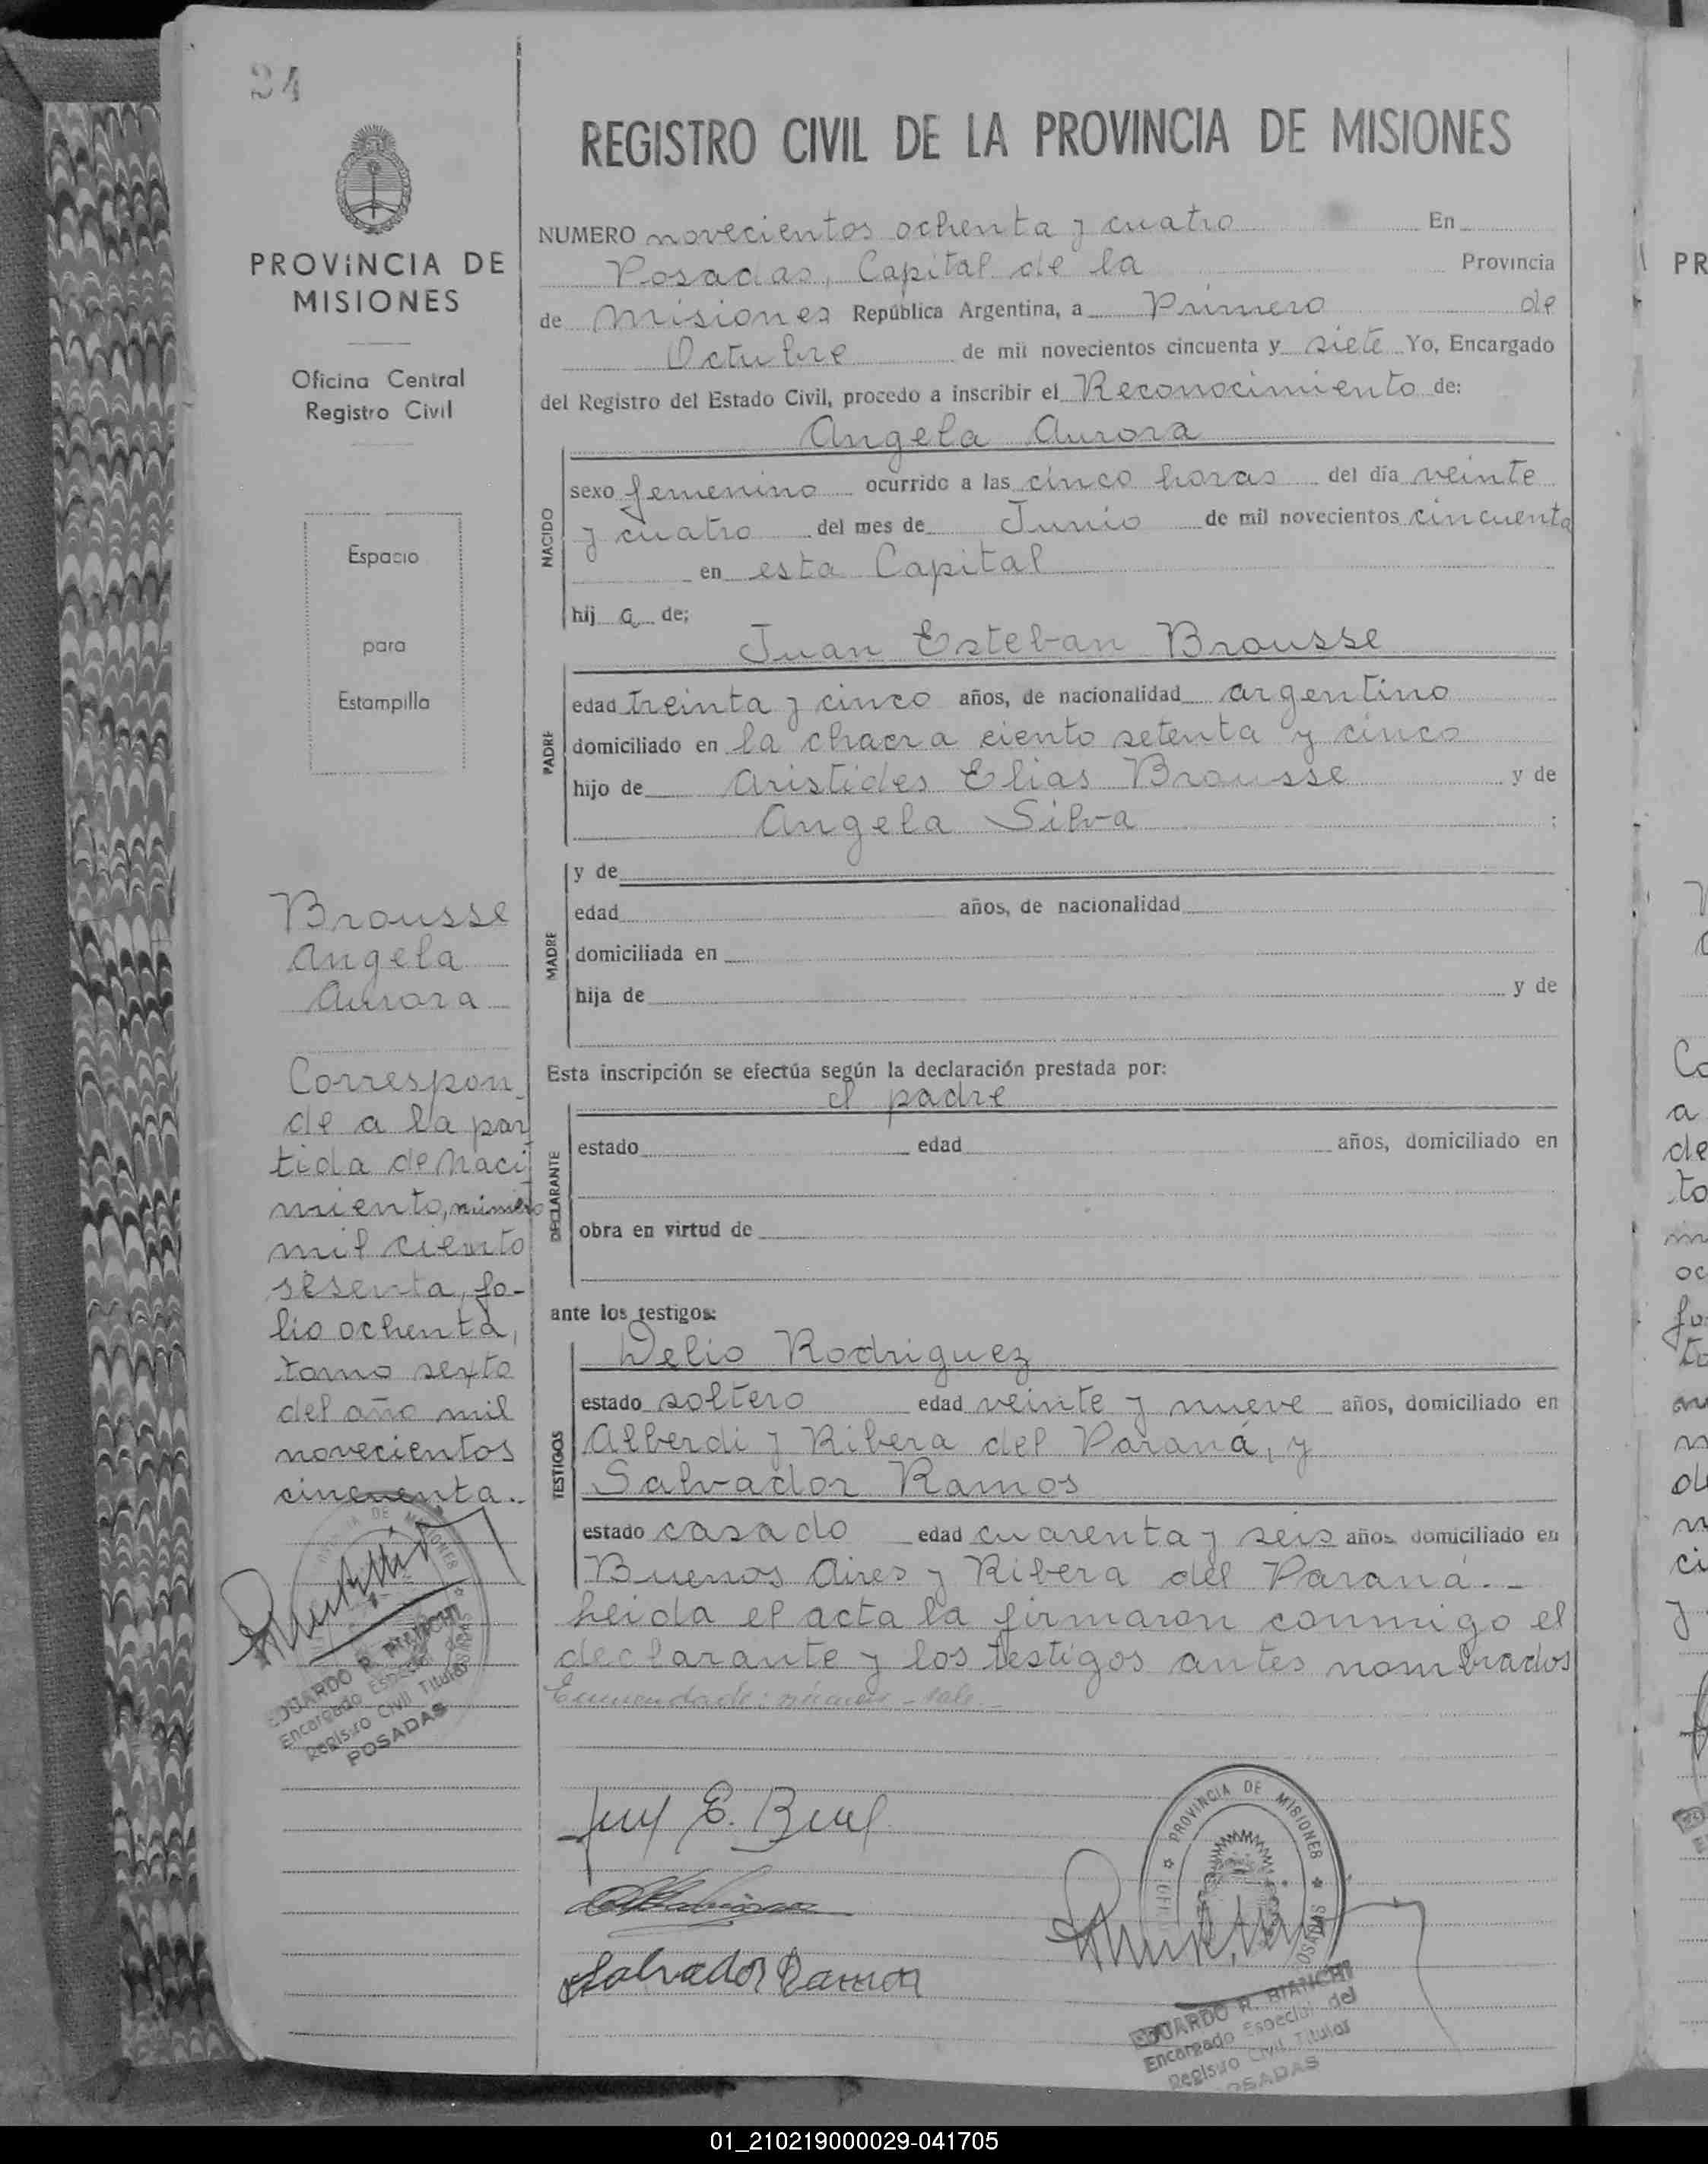 34
PROVINCIA DE
MISIONES
Oficina Central
Registro Civil
Espacio
para
Estampilla
Brousse
Angela
Aurora
Correspon-
de a la par
tida de naci
miento, número
mil ciento
sesenta, fo-
lio ochenta,
tomo sexto
del año mil
novecientos
cincuenta.-
EDUARDO R. BIANCHI
Encargado Especial del
Registro Civil Titular
POSADAS
REGISTRO CIVIL DE LA PROVINCIA DE MISIONES
NUMERO novecientos ochenta y cuatro En
Posadas, Capital de la Provincia
de Misiones República Argentina, a Primero de
Octubre de mil novecientos cincuenta y siete Yo, Encargado
del Registro del Estado Civil, procedo a inscribir el Reconocimiento de:
Angela Aurora
NACIDO
sexo femenino ocurrido a las cinco horas del día veinte
y cuatro del mes de Junio de mil novecientos cincuenta
en esta Capital
hij a de;
Juan Esteban Brousse
PADRE
edad treinta y cinco años, de nacionalidad argentino
domiciliado en la chacra ciento setenta y cinco
hijo de Aristides Elias Brousse y de
Angela Silva ;
MADRE
y de
edad años, de nacionalidad
domiciliada en
hija de y de
Esta inscripción se efectúa según la declaración prestada por:
el padre
DECLARANTE
estado edad años, domiciliado en
obra en virtud de
ante los testigos:
TESTIGOS
Delio Rodriguez
estado soltero edad veinte y nueve años, domiciliado en
Alberdi y Ribera del Paraná, y
Salvador Ramos
estado casado edad cuarenta y seis años, domiciliado en
Buenos Aires y Ribera del Paraná.-
Leida el acta la firmaron conmigo el
declarante y los testigos antes nombrados
Enmendado: número - vale.-
Salvador Ramos
PROVINCIA DE MISIONES
POSADAS
EDUARDO R. BIANCHI
Encargado Especial del
Registro Civil Titular
POSADAS
01_210219000029-041705